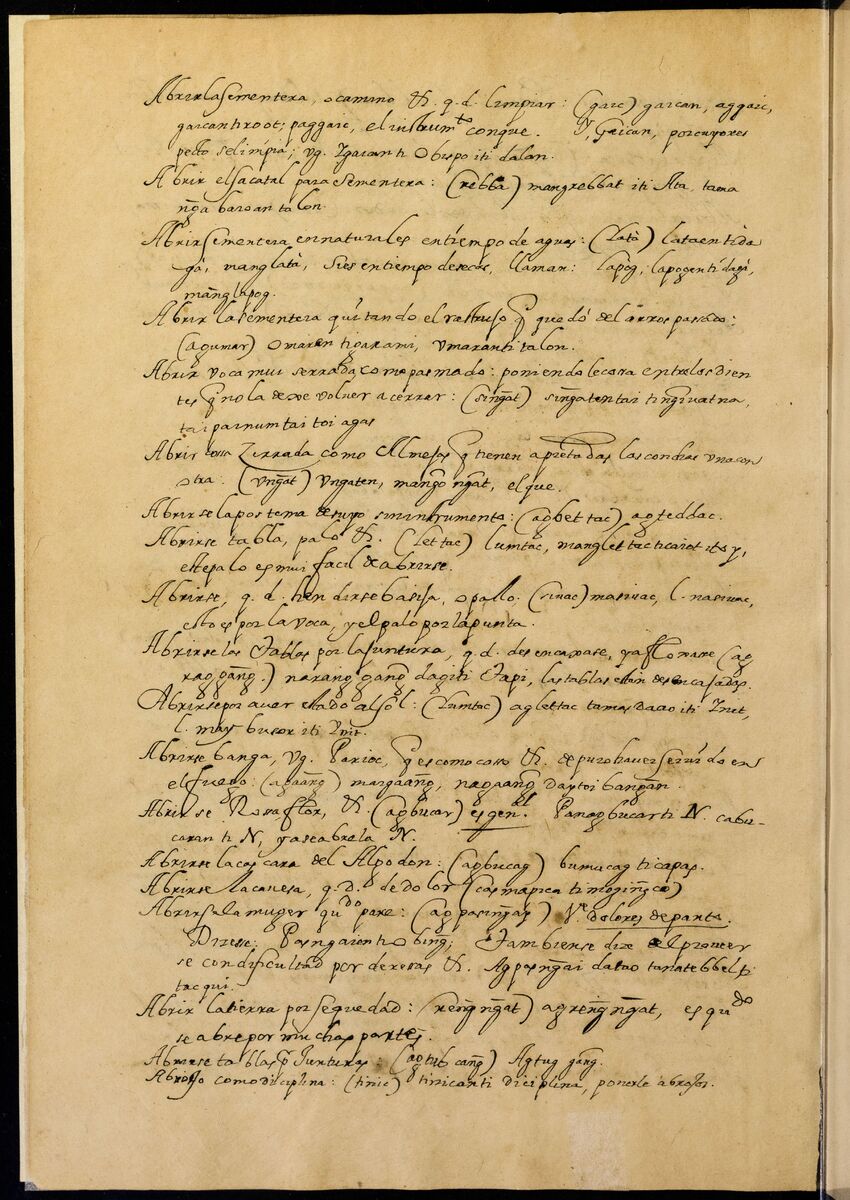 Abrir la sementera, o camino &. q. d. limpiar: (gaic) gaican, aggaic,
gaican ti root; paggaic, el instrumto con que. Gaican, por cuyo res
pecto se limpia; vg. Igaican ti Obispo iti dalan.
Abrir el sacatal para sementera: (rebba) mangrebbat iti Ata, tama
nga baroan talon.
Abrir sementera en naturales en tiempo de aguas: (lata) lataen ti da
ga, manglata, si es en tiempo de secas, llaman: lapog, lapogen ti daga,
manglapog.
Abrir la sementera quitando el rastrojo q quedó del arros pasado:
(agumar) omaren ti garami, umaran ti talon.
Abrir voca mui serrada, como pasmado: poniendole cosa entre los dien
tes q no la dexe volver a cerrar: (singat) singaten tai ti ngiuat na,
tai painum tai toi agas
Abrir cosa zerrada como Almejas q tienen apretadas las conchas una con
otra. (ungat) ungaten, mangongat, el que.
Abrirse la postema de suyo sin instrumento: (agbettac) agteddac.
Abrirse tabla, palo &. (lettac) lumtac, manglettac ti caiot itoy,
este palo es mui facil de abrirse.
Abrirse, q. d. hendirse basija, o pallo. (siuac) masiuac, l. nasiuac,
esto es por la voca, y el palo por la punta.
Abrirse las Tablas por la juntura, q. d. desencaxase, y afloxare (ag
raggang.) naranggang dagiti Tapi, las tablas estan desencasadas.
Abrirse por aver estado al sol: (lumtac) aglettac tamas dacao iti Init,
l. may busor iti Init.
Abrirse banga, vg. Parioc, q es como caso &. de puro haver servido en
el fuego: (agaang) maigaang, nagaang daytoi bangan.
Abrirse Rosa flor, &. (agbucar) es genl. Panagbucar ti N. cabu-
caran ti N, ya se abre la N.
Abrirse la cascara del Algodon: (agbucag) bumucag ti capas.
Abrirse la cavesa, q. D. de dolor (casmapica ti mogingco)
Abrirse la muger qudo pare: (agpasingai) Ve dolores de parto.
Dizese: Pasngaion ti obing; Tambiense dize el prover
se con dificultad por deresas &. Agpasngai datao tanatebbel ti
tac qui.
Abrir la tierra por sequedad: (rengngat) agrengngat, es qudo
se abre por muchas partes.
Abrirse tablas pr Junturas: (agtubcang) Agtuggang.
Abrojo como disciplina: (tinic) tinican ti diciplina, ponerle abrojos.